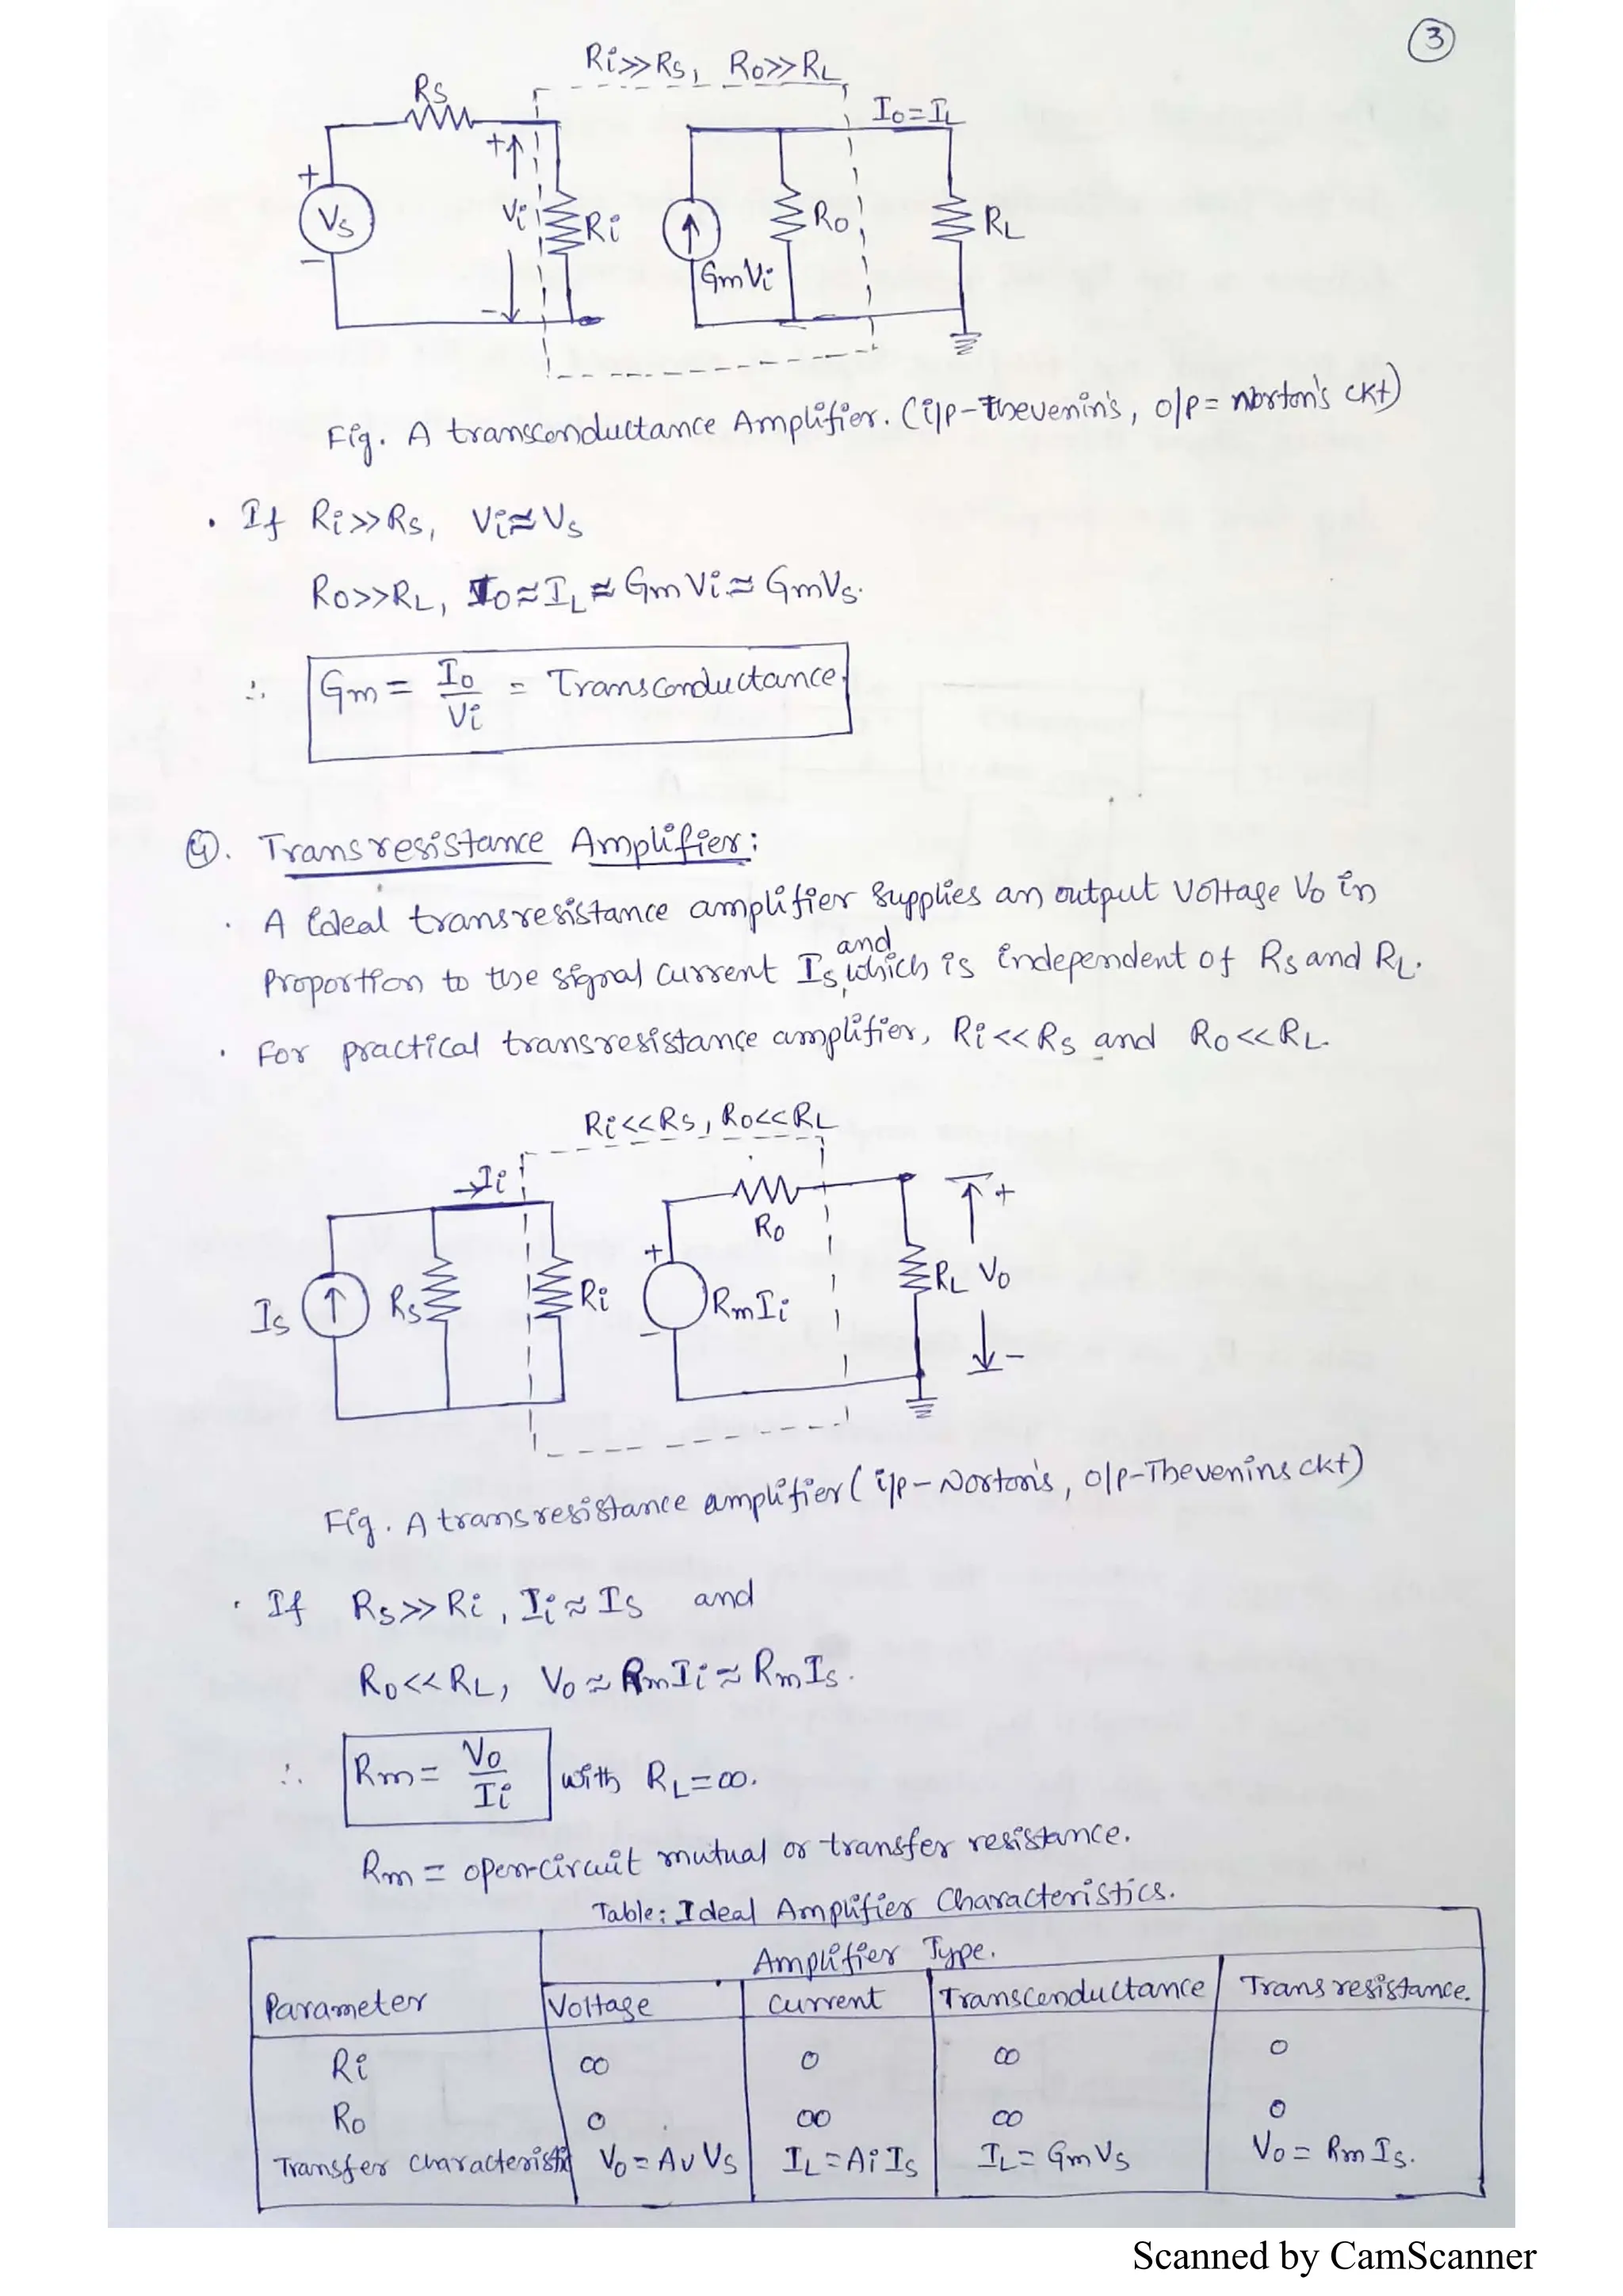 3
Ri>>Rs, Ro>>RL
Rs
Io=IL
+
+
Vs
Vi
Ri
Ro
RL
GmVi
-
-
Fig. A transconductance Amplifier. (i/p-Thevenin's, o/p= Norton's ckt)
• If Ri>>Rs, Vi≈Vs
Ro>>RL, Io≈IL≈GmVi≈GmVs.
∴ Gm = Io/Vi = Transconductance.
④. Transresistance Amplifier:
• A ideal transresistance amplifier supplies an output voltage Vo in
and
proportion to the signal current Is, which is independent of Rs and RL.
• For practical transresistance amplifier, Ri<<Rs and Ro<<RL.
Ri<<Rs, Ro<<RL
Ii
Ro
+
+
Is
Rs
Ri
RmIi
RL
Vo
-
-
Fig. A transresistance amplifier (i/p-Norton's, o/p-Thevenins ckt)
• If Rs>>Ri, Ii≈Is and
Ro<<RL, Vo≈RmIi≈RmIs.
∴ Rm = Vo/Ii with RL=∞.
Rm = open-circuit mutual or transfer resistance.
Table: Ideal Amplifier Characteristics.
Amplifier Type.
Parameter Voltage Current Transconductance Transresistance.
Ri ∞ 0 ∞ 0
Ro 0 ∞ ∞ 0
Transfer characteristic Vo = AvVs IL = AiIs IL = GmVs Vo = RmIs.
Scanned by CamScanner